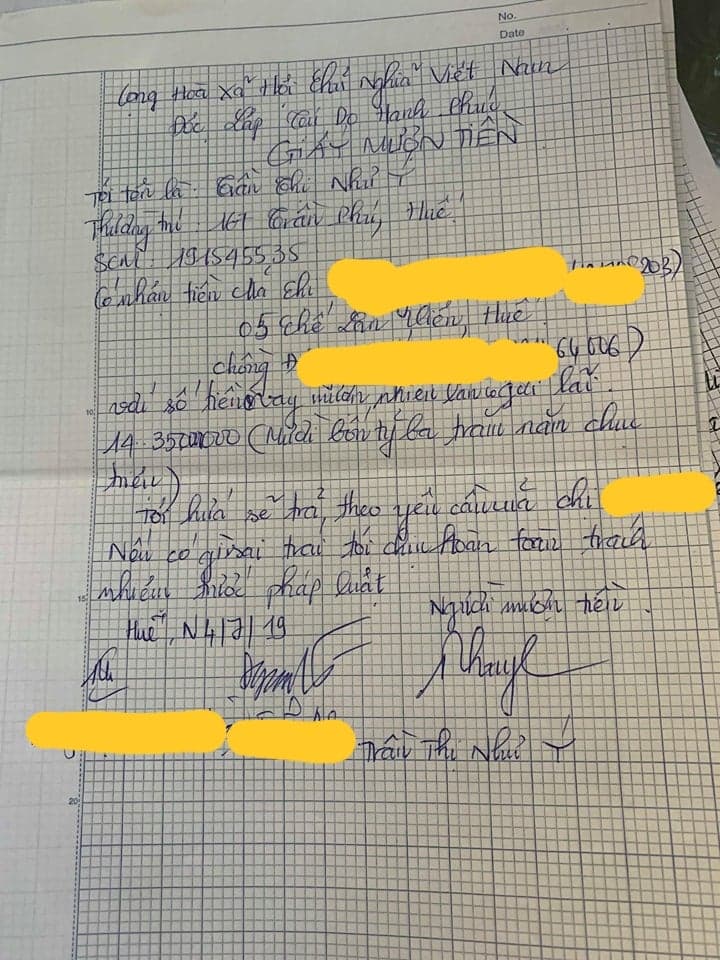 No.
Date
Cộng Hoà Xã Hội Chủ Nghĩa Việt Nam
Độc Lập Tự Do Hạnh Phúc
GIẤY MƯỢN TIỀN
Tôi tên là: Trần Thị Như Ý
Thường trú: 161 Trần Phú, Huế.
SCM: 191545535
Có nhận tiền của chị 203)
05 Chế Lan Viên, Huế
chồng Đ 64006)
với số tiền vay mượn, nhiều lần gửi lãi.
14.350000 (Mười bốn tỷ ba trăm năm chục
triệu)
Tôi hứa sẽ trả, theo yêu cầu của chị
Nếu có gì sai trái tôi chịu hoàn toàn trách
nhiệm trước pháp luật
Người mượn tiền.
Huế, N4/7/19
Trần Thị Như Ý
10
15
20